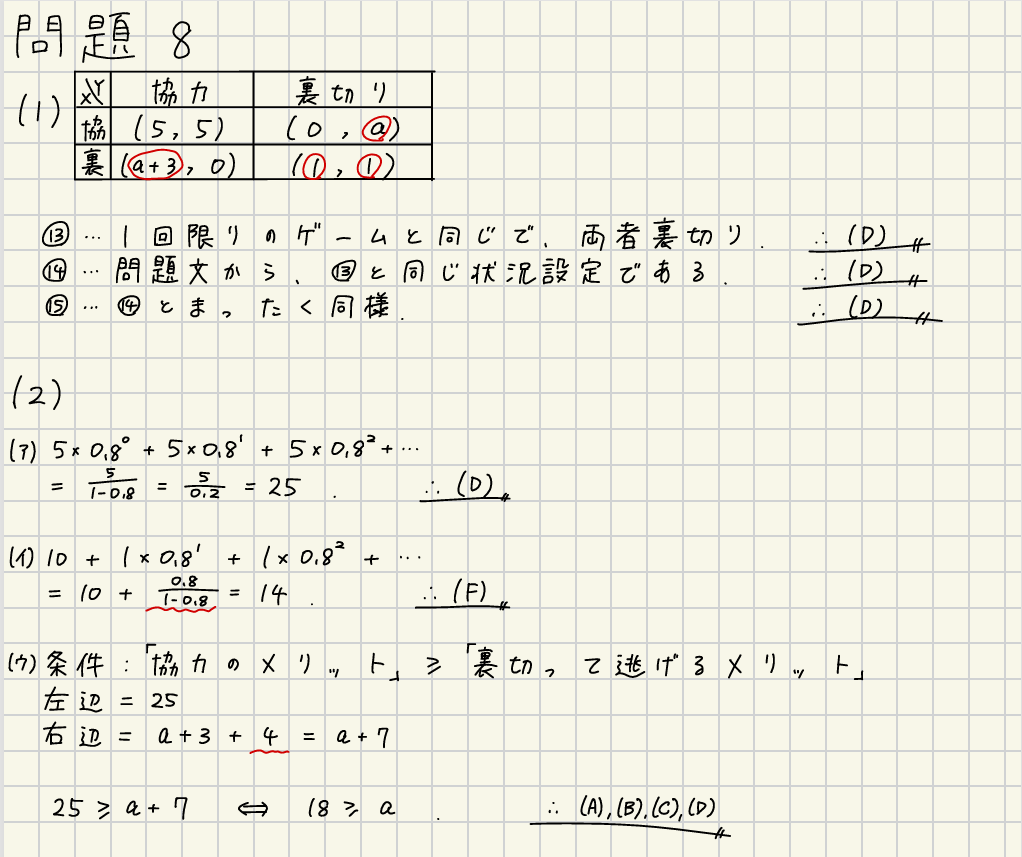 問題 8
(1)
XY 協力 裏切り
協 (5, 5) (0, a)
裏 (a+3, 0) (1, 1)
⑬ … 1回限りのゲームと同じで、両者裏切り. ∴ (D)
⑭ … 問題文から、⑬と同じ状況設定である. ∴ (D)
⑮ … ⑭とまったく同様. ∴ (D)
(2)
(ア) 5×0.8⁰ + 5×0.8¹ + 5×0.8² + …
= 5/(1-0.8) = 5/0.2 = 25 . ∴ (D)
(イ) 10 + 1×0.8¹ + 1×0.8² + …
= 10 + 0.8/(1-0.8) = 14 . ∴ (F)
(ウ) 条件:「協力のメリット」≥「裏切って逃げるメリット」
左辺 = 25
右辺 = a+3 + 4 = a+7
25 ≥ a+7 ⇔ 18 ≥ a . ∴ (A), (B), (C), (D)